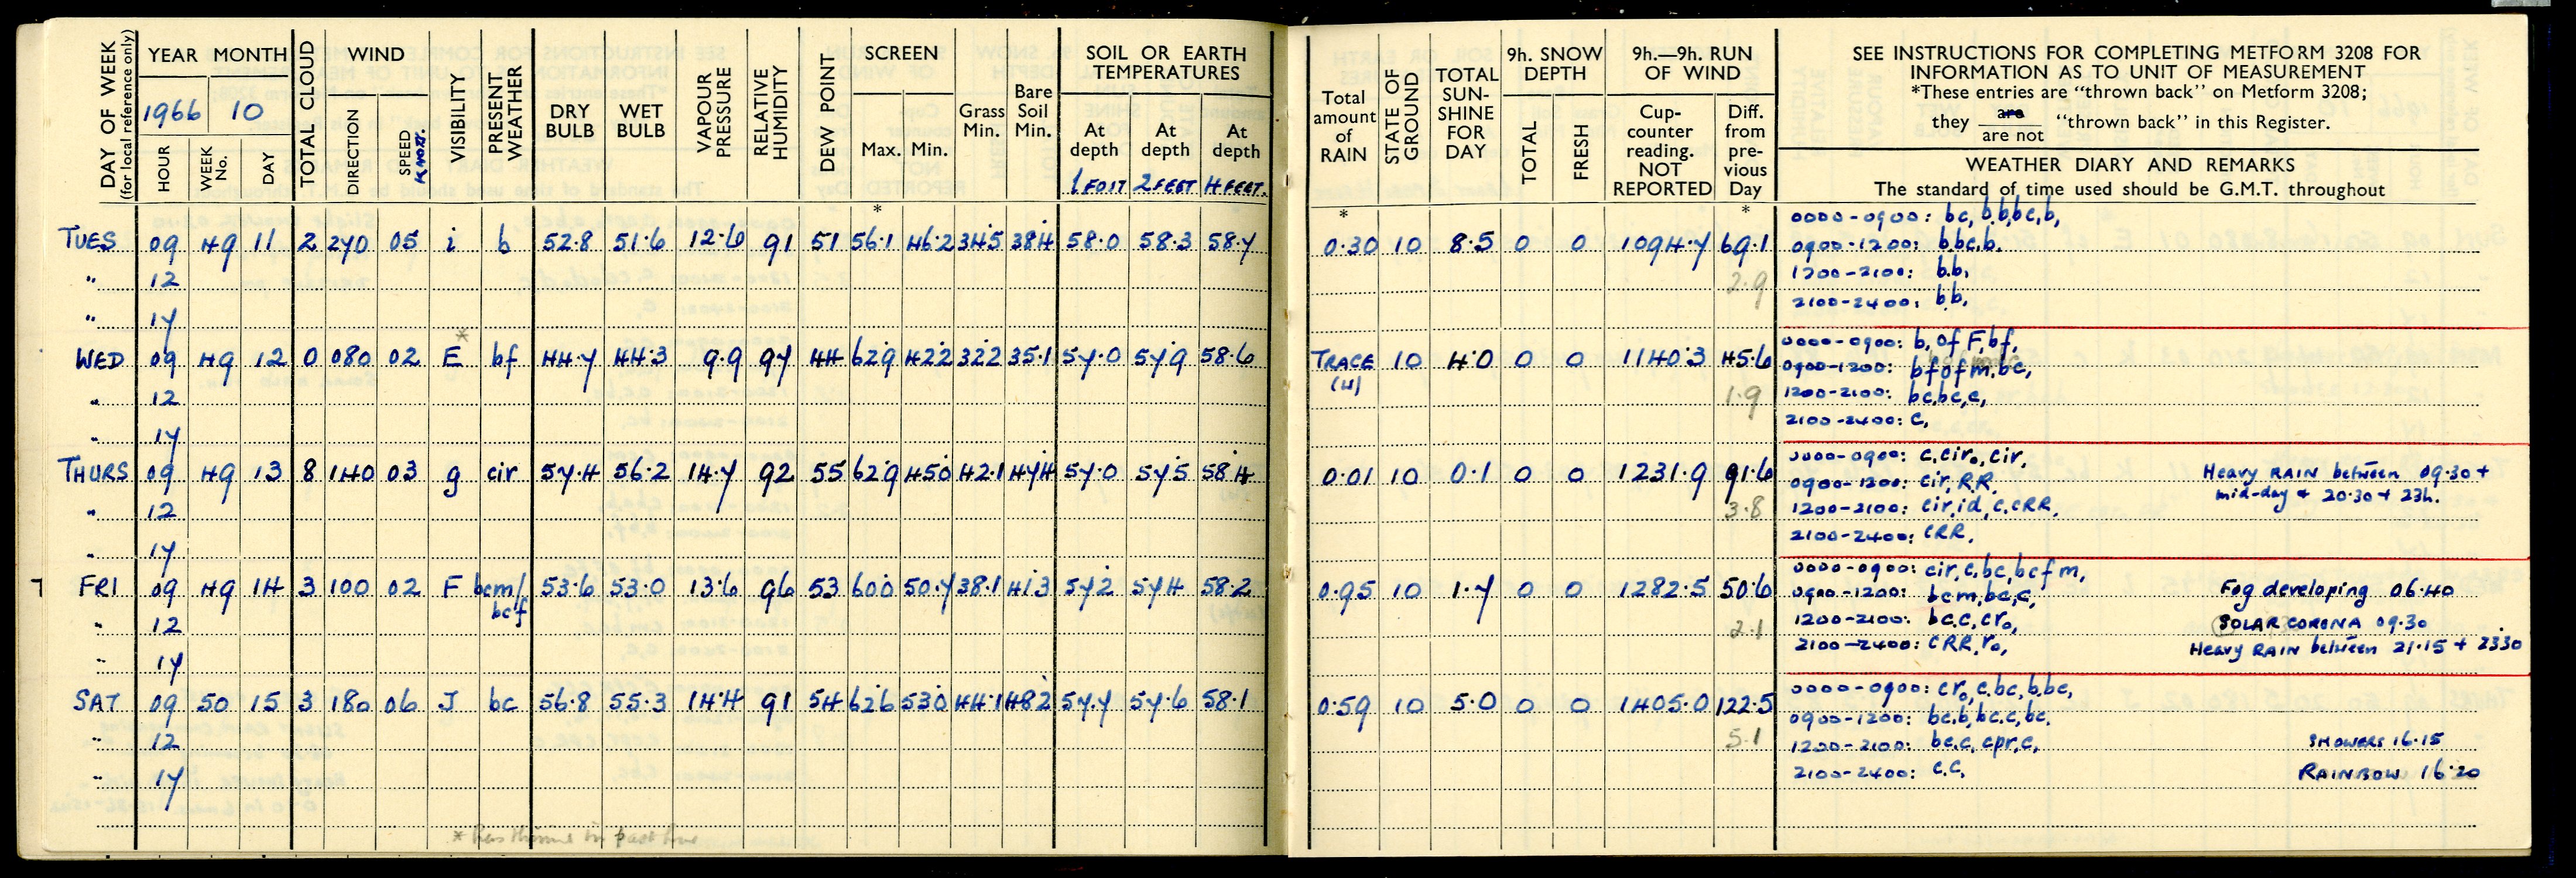 DAY OF WEEK (for local reference only)
YEAR MONTH
1966 10
HOUR WEEK No. DAY
TOTAL CLOUD
WIND
DIRECTION SPEED KNOTS.
VISIBILITY
PRESENT WEATHER
DRY BULB WET BULB
VAPOUR PRESSURE
RELATIVE HUMIDITY
DEW POINT
SCREEN
Max. Min.
Grass Min.
Bare Soil Min.
SOIL OR EARTH TEMPERATURES
At depth At depth At depth
1 FOOT 2 FEET 4 FEET.
Total amount of RAIN
STATE OF GROUND
TOTAL SUN-SHINE FOR DAY
9h. SNOW DEPTH
TOTAL FRESH
9h.—9h. RUN OF WIND
Cup-counter reading. NOT REPORTED
Diff. from pre-vious Day
SEE INSTRUCTIONS FOR COMPLETING METFORM 3208 FOR
INFORMATION AS TO UNIT OF MEASUREMENT
*These entries are "thrown back" on Metform 3208;
they are / are not "thrown back" in this Register.
WEATHER DIARY AND REMARKS
The standard of time used should be G.M.T. throughout
* * *
TUES 09 49 11 2 270 05 i b 52.8 51.6 12.6 91 51 56.1 46.2 34.5 38.4 58.0 58.3 58.7 0.30 10 8.5 0 0 1094.7 69.1
0000-0900: bc, b.b,bc,b,
0900-1200: b.bc,b.
" 12 2.9
1200-2100: b.b,
" 17
2100-2400: b.b,
WED 09 49 12 0 080 02 E* bf 44.7 44.3 9.9 97 44 62.9 42.2 32.2 35.1 57.0 57.9 58.6 TRACE (W) 10 4.0 0 0 1140.3 45.6
0000-0900: b, of F, bf,
0900-1200: bf of m, bc,
" 12 1.9
1200-2100: bc,bc,c,
" 17
2100-2400: c,
THURS 09 49 13 8 140 03 g cir 57.4 56.2 14.7 92 55 62.9 45.0 42.1 47.4 57.0 57.5 58.4 0.01 10 0.1 0 0 1231.9 91.6
0000-0900: c,ciro, cir,
0900-1200: cir, R.R.
Heavy RAIN between 09.30 +
mid-day & 20.30 + 23h.
" 12 3.8
1200-2100: cir, id, c, cRR,
" 17
2100-2400: cRR,
7 FRI 09 49 14 3 100 02 F bcm/ bcf 53.6 53.0 13.6 96 53 60.0 50.7 38.1 41.3 57.2 57.4 58.2 0.95 10 1.7 0 0 1282.5 50.6
0000-0900: cir, c, bc, bcf m,
0900-1200: bcm, bc, c,
Fog developing 06.40
" 12 2.1
1200-2100: bc.c, cro,
SOLAR CORONA 09.30
" 17
2100-2400: cRR, ro,
Heavy RAIN between 21.15 + 2330
SAT 09 50 15 3 180 06 J bc 56.8 55.3 14.4 91 54 62.6 53.0 44.1 48.2 57.7 57.6 58.1 0.59 10 5.0 0 0 1405.0 122.5
0000-0900: cro, c, bc, b.bc,
0900-1200: bc.b, bc.c, bc.
" 12 5.1
1200-2100: bc.c, cpr, c,
SHOWERS 16.15
" 17
2100-2400: c.c,
RAINBOW 16.20